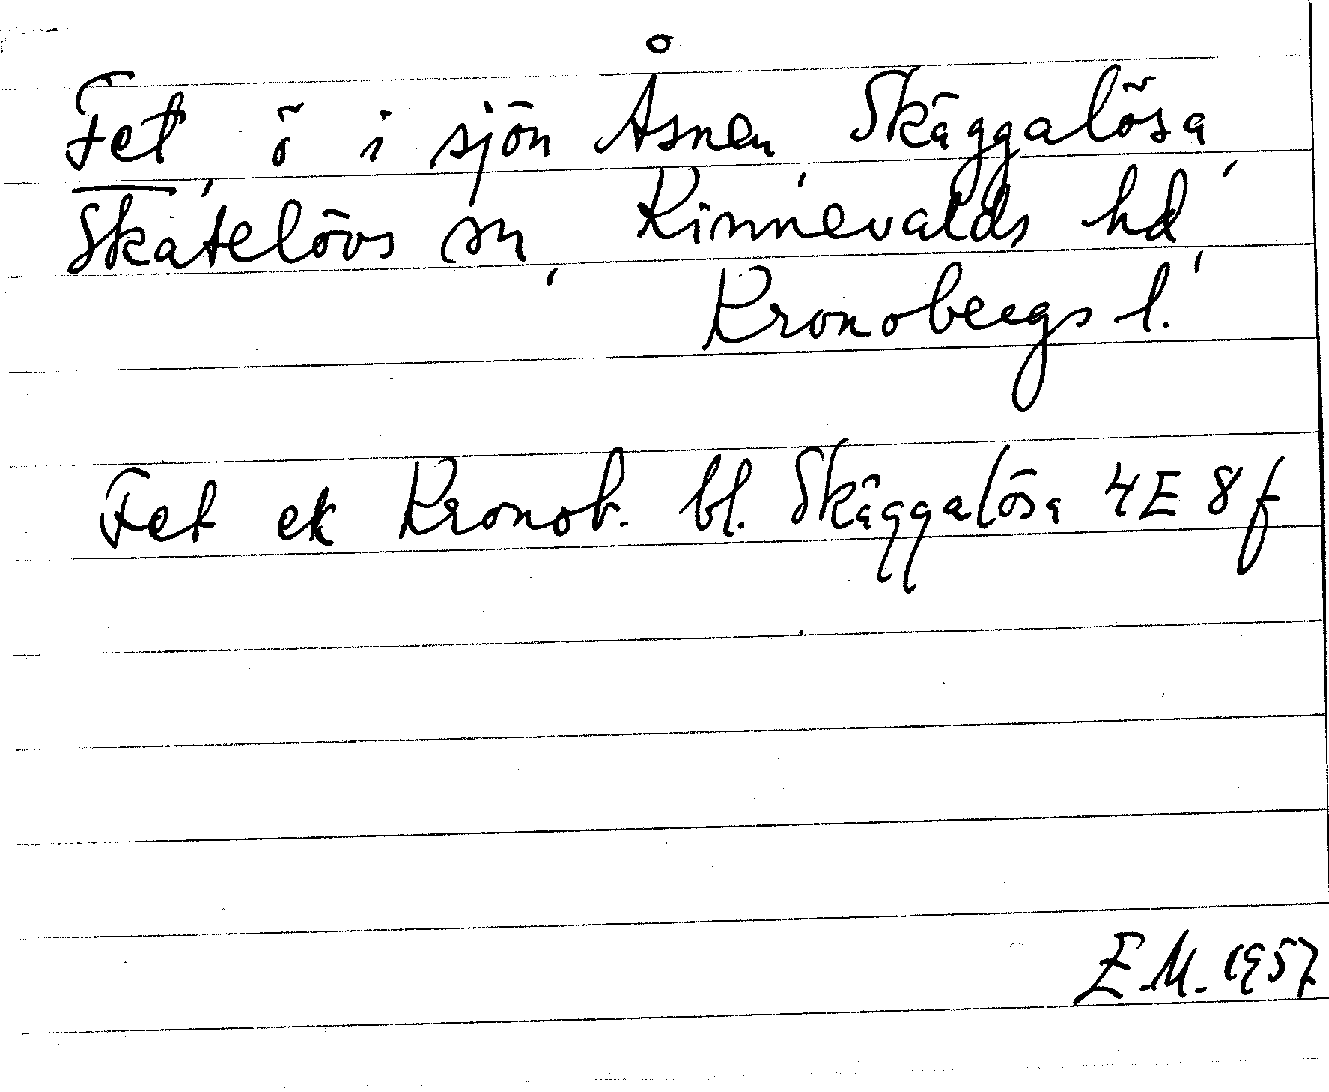 Fet, ö i sjön Åsnen, Skäggalösa,
Skatelövs sn, Kinnevalds hd,
Kronobergs l.
Fet ek Kronob. bl. Skäggalösa 4E 8f
E.M. 1957